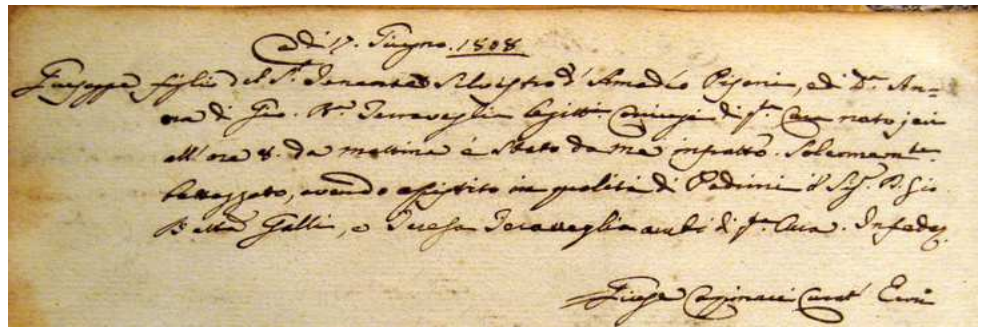 Adi 17. Giugno. 1808
Giuseppe figlio del Sr. Tenente Silvestro d'Amadio Pisoni, e di Da. An=
na di Gio. Ba. Terraveglia legitti. Coniugi di qta. Cura nato jeri
all'ore 8. da mattina è stato da me infratto. Solennemte.
battezzato, avendo assistito in qualità di Padrini il Sigr. D. Gio
Batta Galli, e Teresa Teraveglia ambi di qta. Cura. In fede
Curat